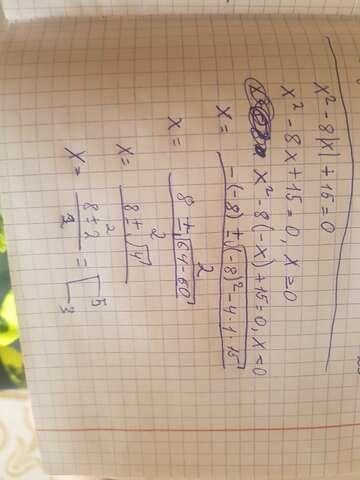 x² - 8|x| + 15 = 0
x² - 8x + 15 = 0, x ≥ 0
x² - 8(-x) + 15 = 0, x < 0
x = (-(-8) ± √((-8)² - 4·1·15)) / 2
x = (8 ± √(64 - 60)) / 2
x = (8 ± √4) / 2
x = (8 ± 2) / 2 = [ 5
3